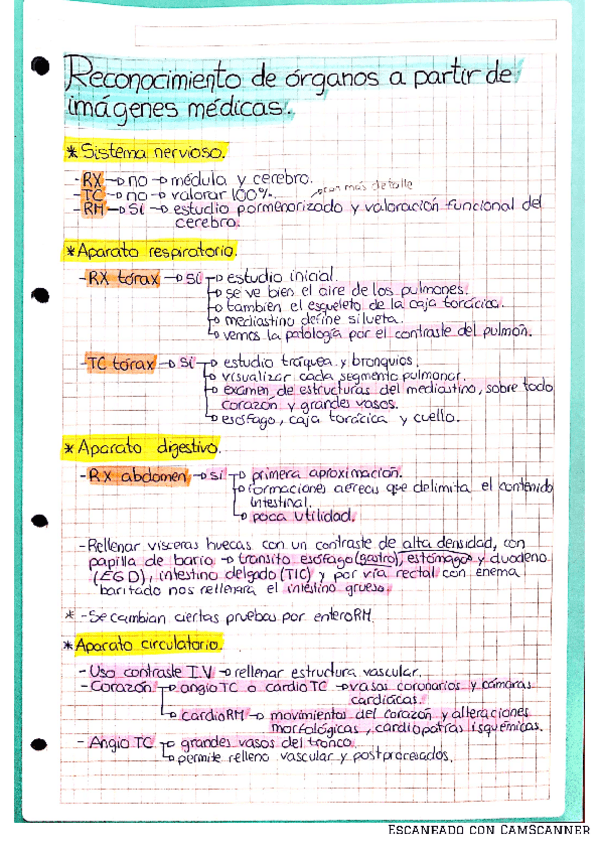 Reconocimiento de órganos a partir de
imágenes médicas.
* Sistema nervioso.
- RX → no → médula y cerebro.
- TC → no → valorar 100%. → con más detalle
- RM → SÍ → estudio pormenorizado y valoración funcional del
cerebro.
* Aparato respiratorio.
- RX tórax → sí → estudio inicial.
→ se ve bien el aire de los pulmones.
→ también el esqueleto de la caja torácica.
→ mediastino define silueta.
→ vemos la patología por el contraste del pulmón.
- TC tórax → sí → estudio tráquea y bronquios.
→ visualizar cada segmento pulmonar.
→ examen de estructuras del mediastino, sobre todo
corazón y grandes vasos.
→ esófago, caja torácica y cuello.
* Aparato digestivo.
- RX abdomen → si → primera aproximación.
→ formaciones aéreas que delimita el contenido
intestinal.
→ poca utilidad.
- Rellenar vísceras huecas con un contraste de alta densidad, con
papilla de bario → tránsito esófago (gastro), estómago y duodeno
(EGD), intestino delgado (TIC) y por vía rectal con enema
baritado nos rellenará el intestino grueso
* - Se cambian ciertas pruebas por enteroRM.
* Aparato circulatorio.
- Uso contraste I.V → rellenar estructura vascular.
- Corazón → angioTC o cardioTC → vasos coronarios y cámaras
cardiacas.
→ cardioRM → movimientos del corazón y alteraciones
morfológicas, cardiopatías isquémicas.
- Angio TC → grandes vasos del tronco.
→ permite relleno vascular y postprocesados.
Escaneado con CamScanner